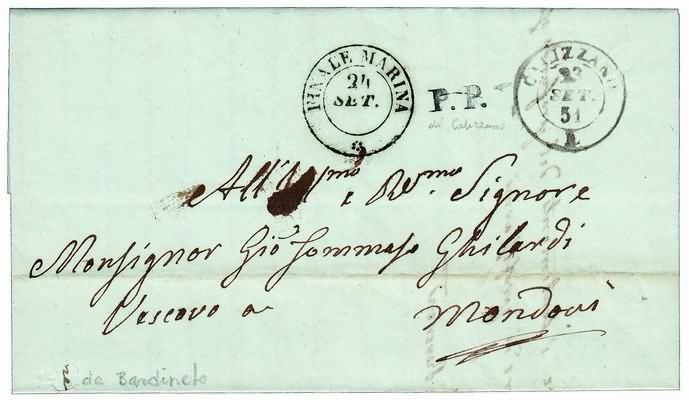 FINALE MARINA
24
SET.
P. P.
di Calizzano
CALIZZANO
23
SET.
51
All' Ill.mo e Rev.mo Signore
Monsignor Gio Tommaso Ghilardi
Vescovo a Mondovì
da Bardineto